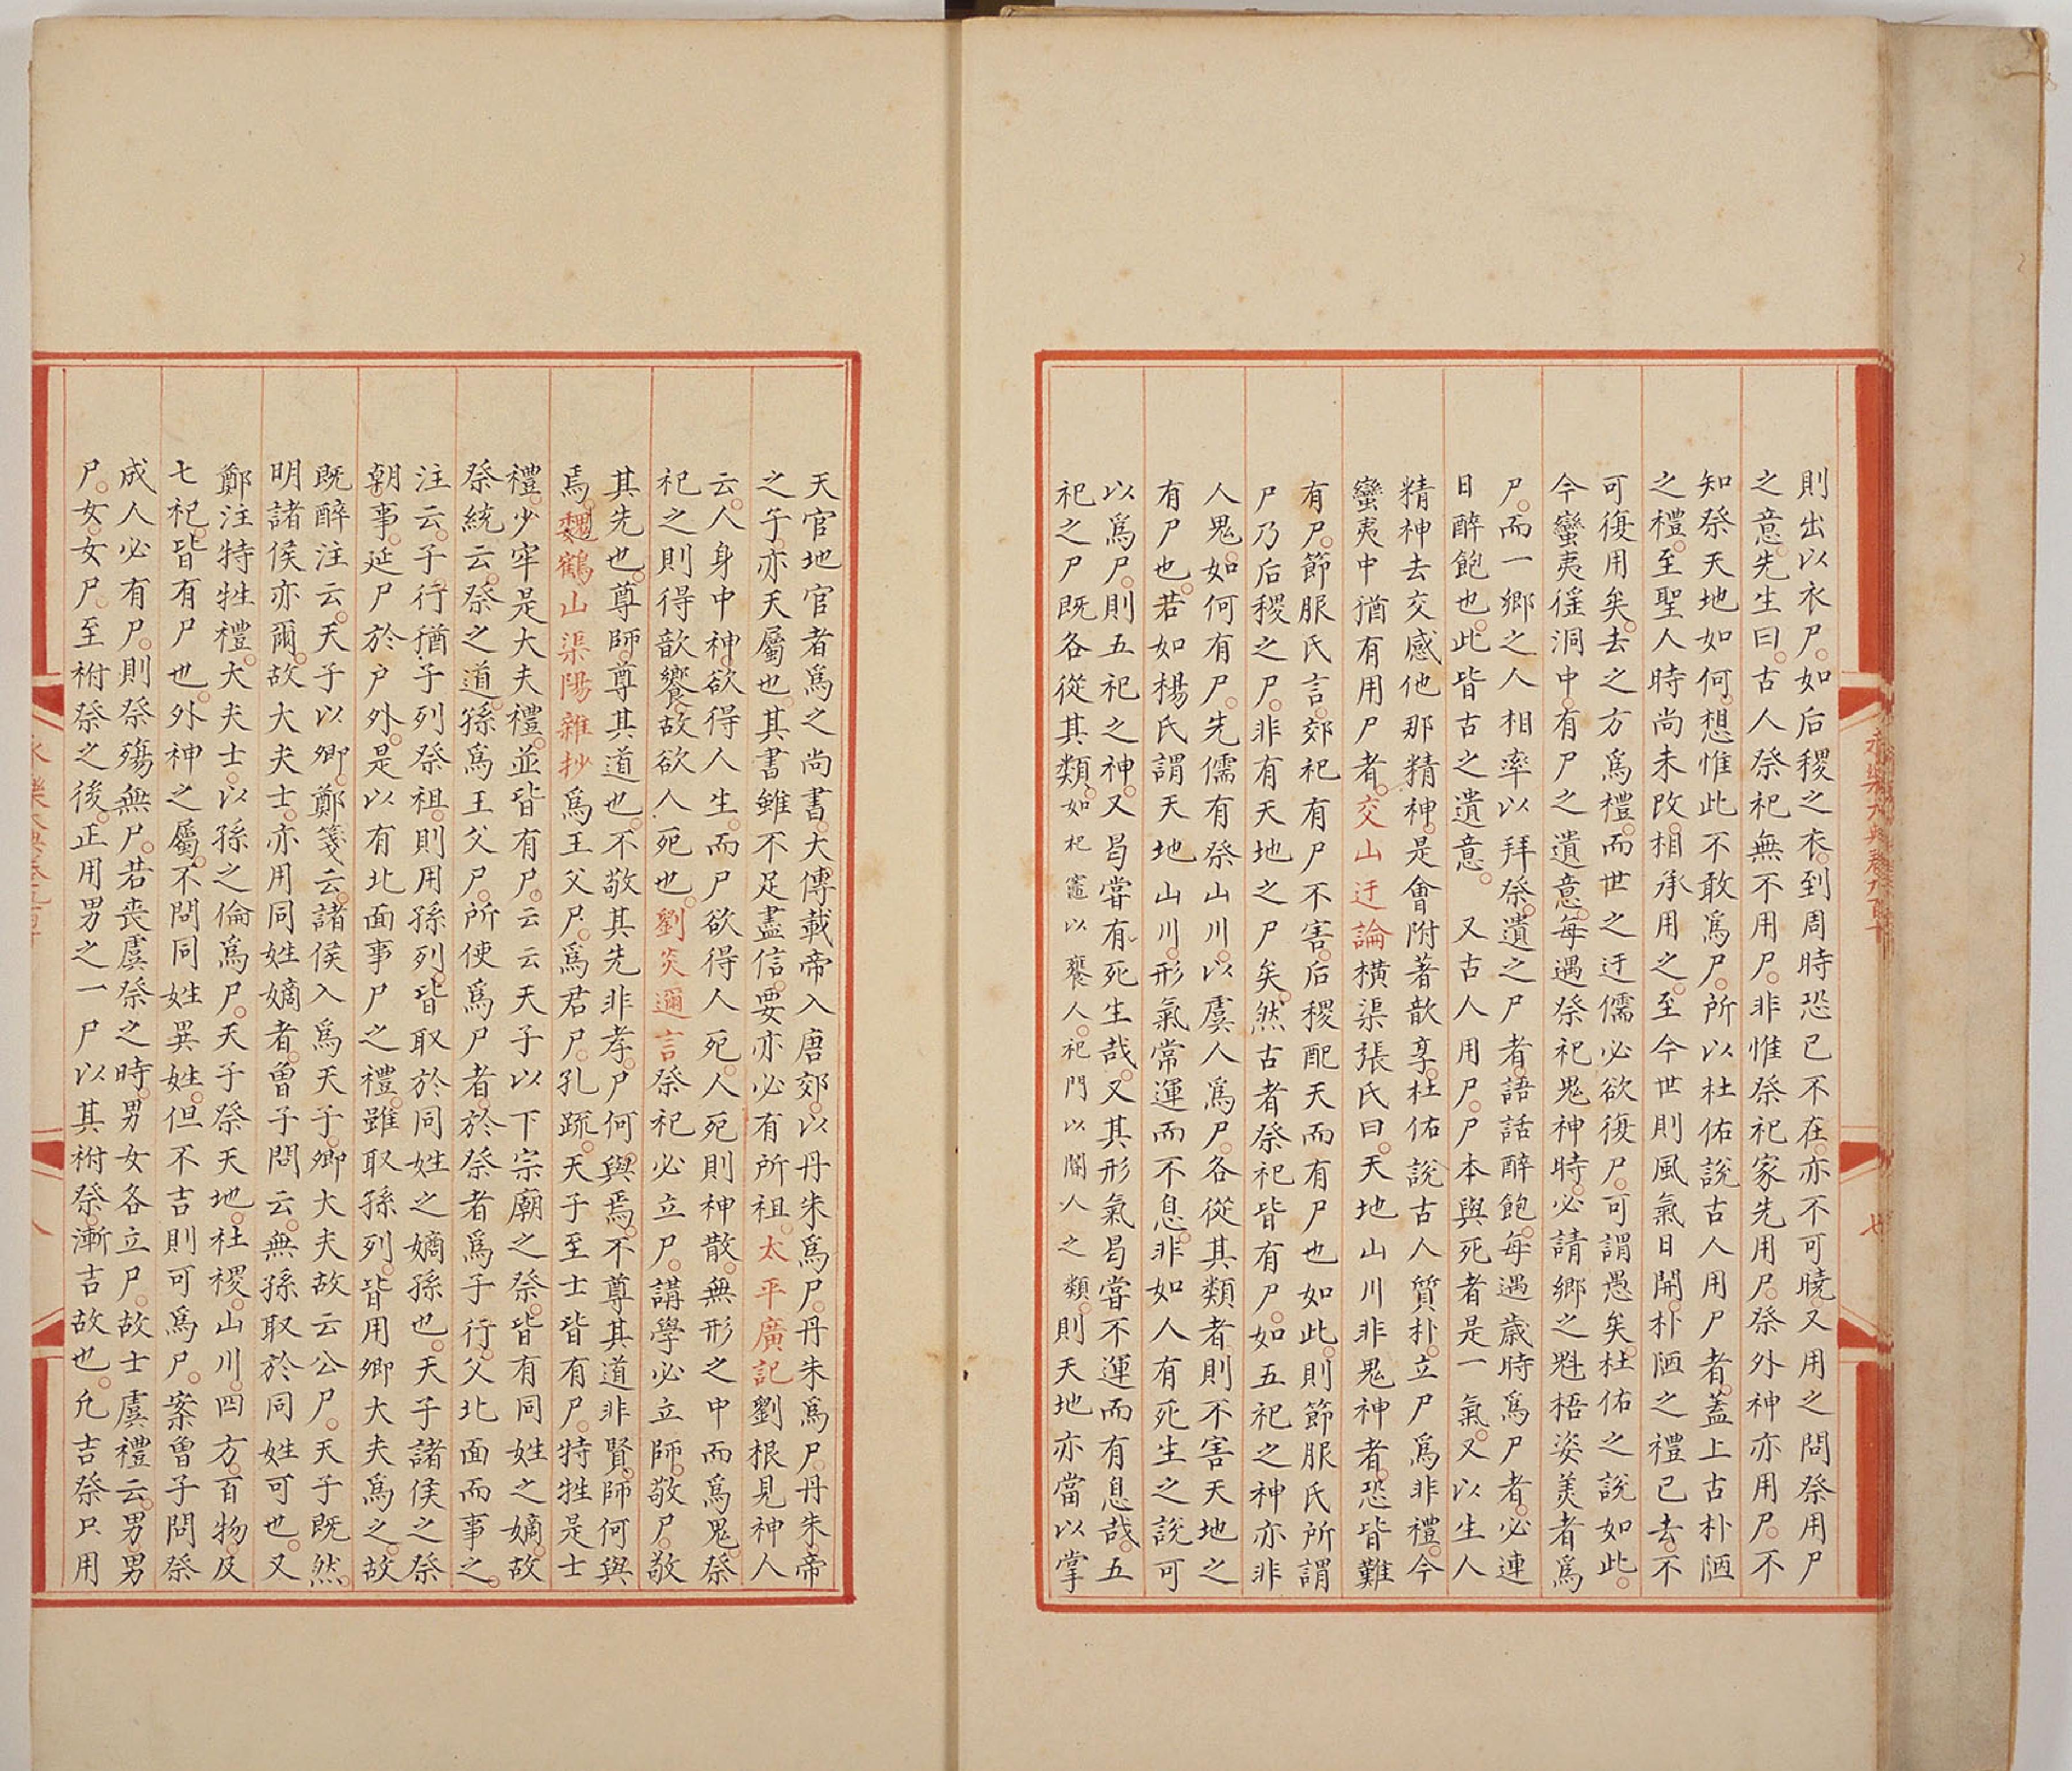 則出以衣尸。如后稷之衣。到周時恐已不在。亦不可曉。又用之問祭用尸
之意。先生曰。古人祭祀無不用尸。非惟祭祀家先用尸。祭外神亦用尸。不
知祭天地如何。想惟此不敢爲尸。所以杜佑說古人用尸者。蓋上古朴陋
之禮。至聖人時尚未改。相承用之。至今世則風氣日開。朴陋之禮已去。不
可復用矣。去之方爲禮。而世之迂儒必欲復尸。可謂愚矣。杜佑之說如此。
今蠻夷徭洞中。有尸之遺意。每遇祭祀鬼神時。必請鄉之魁梧姿美者爲
尸。而一鄉之人相率以拜祭。遺之尸者。語話醉飽。每遇歲時爲尸者。必連
日醉飽也。此皆古之遺意。 又古人用尸。尸本與死者是一氣。又以生人
精神去交感他那精神。是會附著歆享。杜佑說古人質朴。立尸爲非禮。今
蠻夷中猶有用尸者。交山迂論橫渠張氏曰。天地山川非鬼神者。恐皆難
有尸。節服氏言。郊祀有尸不害。后稷配天而有尸也如此。則節服氏所謂
尸乃后稷之尸。非有天地之尸矣。然古者祭祀皆有尸。如五祀之神亦非
人鬼。如何有尸。先儒有祭山川。以虞人爲尸。各從其類者。則不害天地之
有尸也。若如楊氏謂天地山川。形氣常運而不息。非如人有死生之說可
以爲尸。則五祀之神。又曷嘗有死生哉。又其形氣曷嘗不運而有息哉。五
祀之尸既各從其類。如祀竈以饔人。祀門以閽人之類。則天地亦當以掌
天官地官者爲之尚書。大傳載帝入唐郊。以丹朱爲尸。丹朱爲尸。丹朱。帝
之子。亦天屬也。其書雖不足盡信。要亦必有所祖。太平廣記劉根見神人
云。人身中神。欲得人生。而尸欲得人死。人死則神散。無形之中而爲鬼。祭
祀之則得歆饗。故欲人死也。劉炎邇言祭祀必立尸。講學必立師。敬尸。敬
其先也。尊師。尊其道也。不敬其先非孝。尸何與焉。不尊其道非賢。師何與
焉。魏鶴山渠陽雜抄爲王父尸。爲君尸。孔疏。天子至士皆有尸。特牲是士
禮。少牢是大夫禮。並皆有尸。云云天子以下宗廟之祭。皆有同姓之嫡。故
祭統云。祭之道。孫爲王父尸。所使爲尸者。於祭者爲子行。父北面而事之。
注云。子行猶子列祭祖。則用孫列。皆取於同姓之嫡孫也。天子諸侯之祭
朝事。延尸於戶外。是以有北面事尸之禮。雖取孫列。皆用卿大夫爲之。故
既醉注云。天子以卿。鄭箋云。諸侯入爲天子。卿大夫故云公尸。天子既然。
明諸侯亦爾。故大夫士。亦用同姓嫡者。曾子問云。無孫取於同姓可也。又
鄭注特牲禮。大夫士。以孫之倫爲尸。天子祭天地。社稷。山川。四方。百物。及
七祀。皆有尸也。外神之屬。不問同姓異姓。但不吉則可爲尸。案曾子問祭
成人必有尸。則祭殤無尸。若喪虞祭之時。男女各立尸。故士虞禮云。男。男
尸。女。女尸。至祔祭之後。正用男之一尸以其祔祭。漸吉故也。允吉祭只用